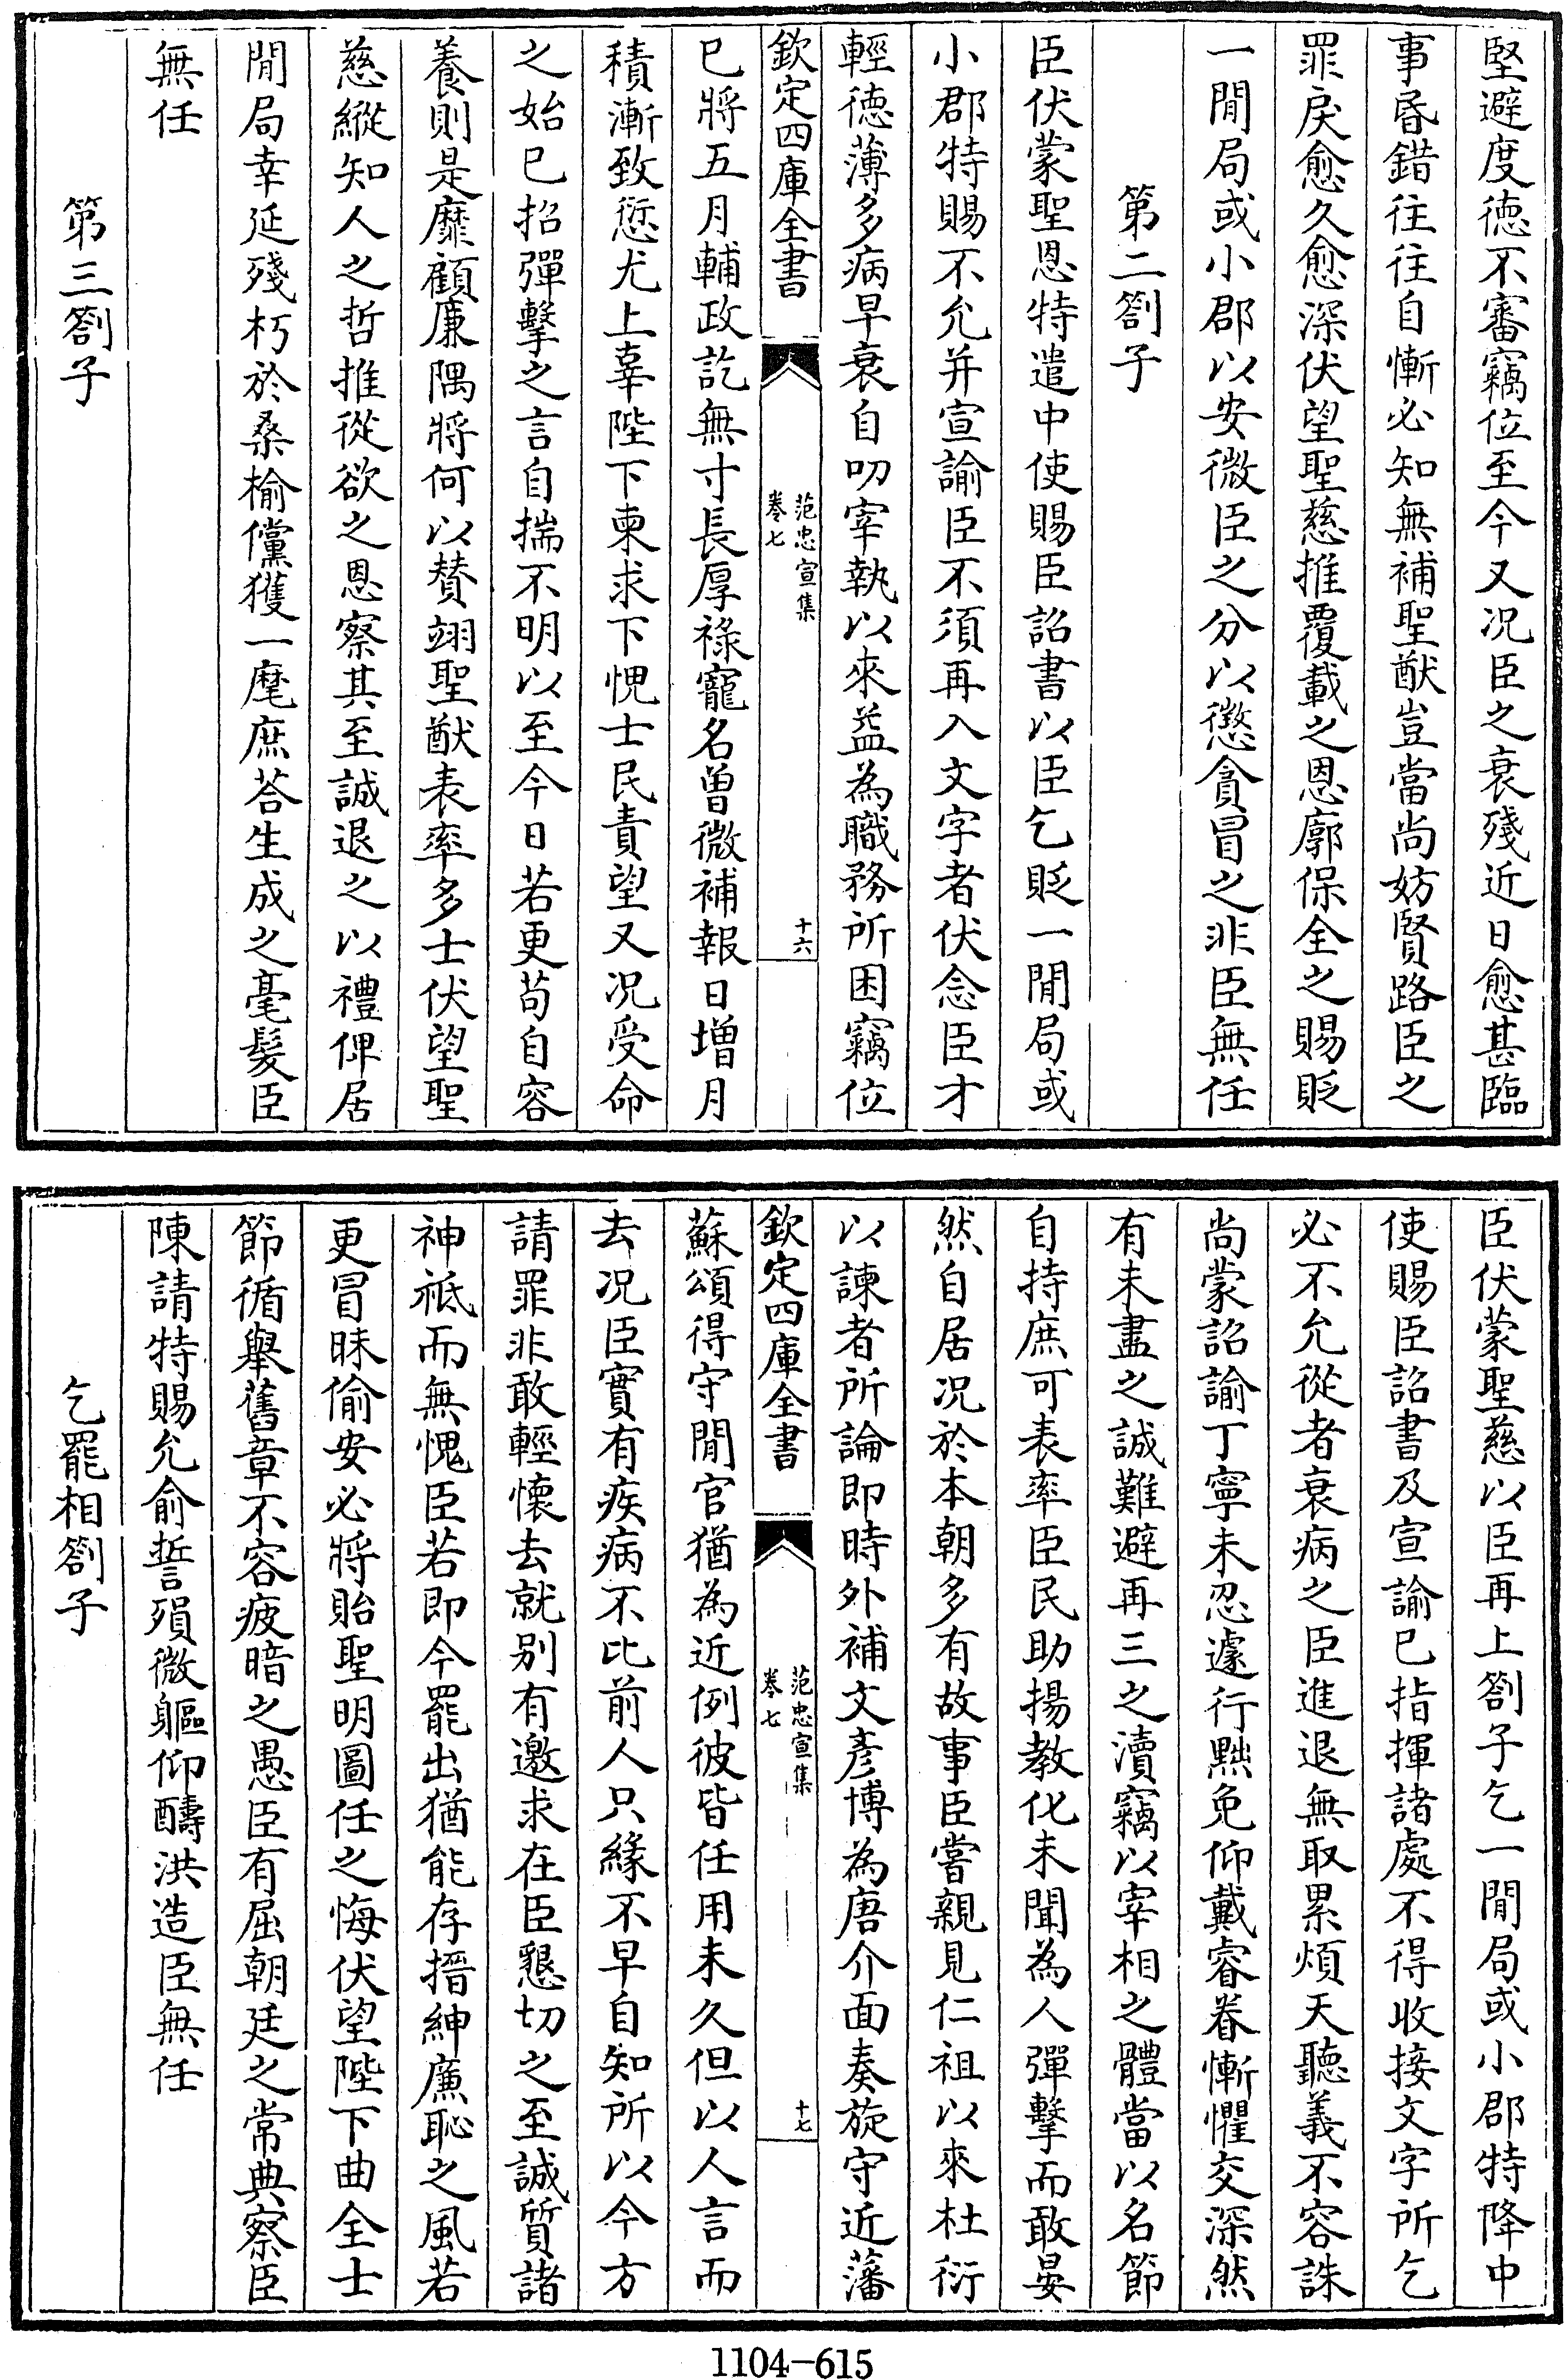 堅避度徳不審竊位至今又况臣之衰殘近日愈甚臨
事昬錯往往自慚必知無補聖猷豈當尚妨賢路臣之
罪戾愈久愈深伏望聖慈推覆載之恩廓保全之賜貶
一閒局或小郡以安微臣之分以懲貪冒之非臣無任
第二劄子
臣伏蒙聖恩特遣中使賜臣詔書以臣乞貶一閒局或
小郡特賜不允并宣諭臣不須再入文字者伏念臣才
輕徳薄多病早衰自叨宰執以來益為職務所困竊位
欽定四庫全書
范忠宣集
卷七
十六
已將五月輔政訖無寸長厚祿寵名曽微補報日増月
積漸致愆尤上辜陛下柬求下愧士民責望又况受命
之始已招彈擊之言自揣不明以至今日若更苟自容
養則是靡顧廉隅將何以賛翊聖猷表率多士伏望聖
慈縱知人之哲推從欲之恩察其至誠退之以禮俾居
閒局幸延殘朽於桑榆儻獲一麾庶荅生成之毫髮臣
無任
第三劄子
臣伏蒙聖慈以臣再上劄子乞一閒局或小郡特降中
使賜臣詔書及宣諭已指揮諸處不得收接文字所乞
必不允從者衰病之臣進退無取累煩天聽義不容誅
尚蒙詔諭丁寧未忍遽行黜免仰戴睿眷慚懼交深然
有未盡之誠難避再三之瀆竊以宰相之體當以名節
自持庶可表率臣民助揚教化未聞為人彈擊而敢晏
然自居况於本朝多有故事臣嘗親見仁祖以來杜衍
以諫者所論即時外補文彦博為唐介面奏旋守近藩
欽定四庫全書
范忠宣集
卷七
十七
蘇頌得守閒官猶為近例彼皆任用未久但以人言而
去况臣實有疾病不比前人只緣不早自知所以今方
請罪非敢輕懷去就别有邀求在臣懇切之至誠質諸
神祗而無愧臣若即今罷出猶能存搢紳廉恥之風若
更冒昧偷安必將貽聖明圖任之悔伏望陛下曲全士
節循舉舊章不容疲暗之愚臣有屈朝廷之常典察臣
陳請特賜允俞誓殞微軀仰醻洪造臣無任
乞罷相劄子
1104-615